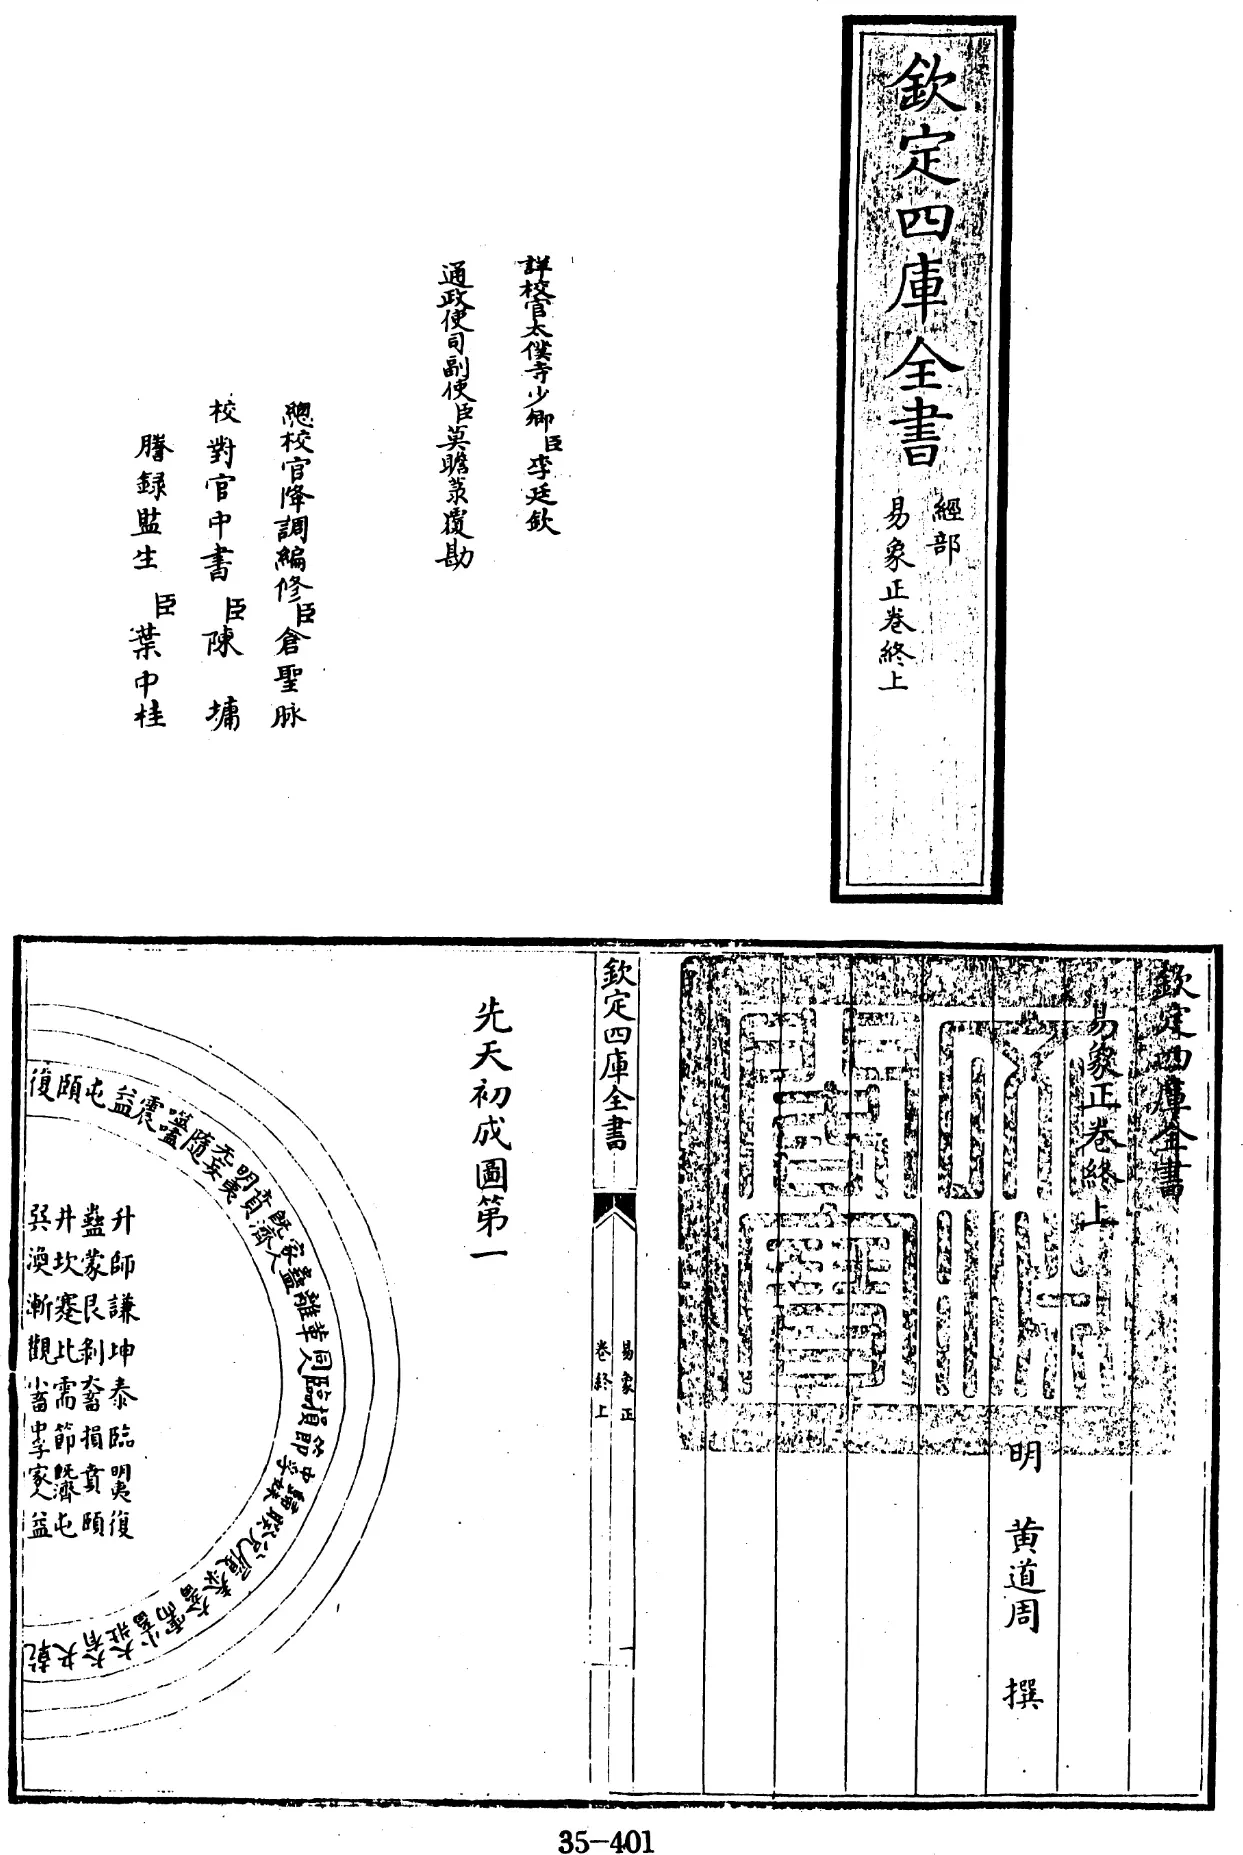 欽定四庫全書
經部
易象正卷終上
詳校官太僕寺少卿臣李廷欽
通政使司副使臣莫瞻菉覆勘
總校官降調編修臣倉聖脉
校對官中書臣陳墉
謄録監生臣葉中桂
欽定四庫全書
易象正卷終上
明 黄道周 撰
欽定四庫全書
易象正
卷終上
一
先天初成圖第一
復頤屯益震噬嗑隨无妄明夷賁既濟家人豐離革同人臨損節中孚歸妹睽兌履泰大畜需小畜大壯大有夬乾
升師謙坤泰臨明夷復
蠱蒙艮剝大畜損賁頤
井坎蹇比需節既濟屯
巽渙漸觀小畜中孚家人益
35-401